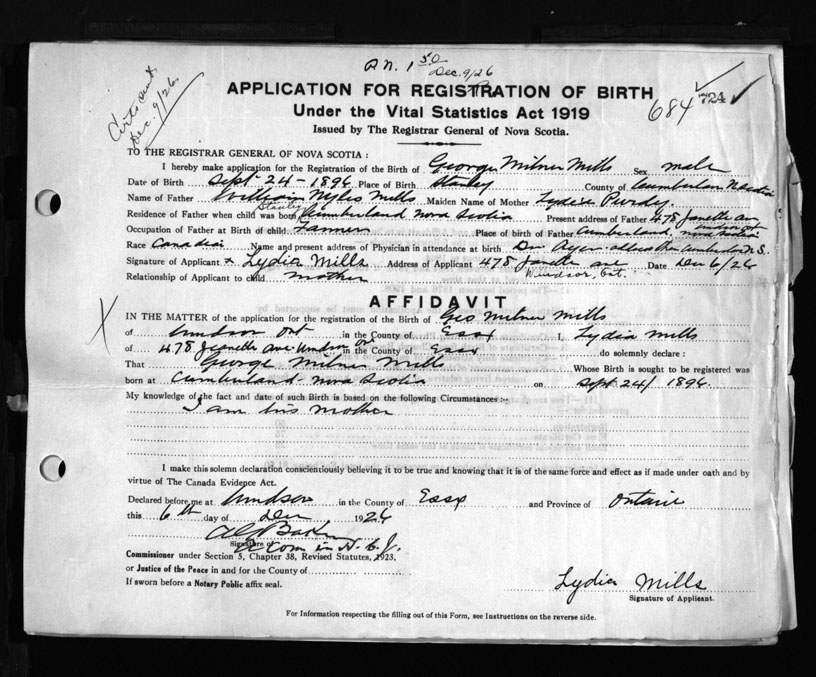 P.N. 1 50
Dec. 9/26
Certs sent
Dec. 9/26
APPLICATION FOR REGISTRATION OF BIRTH
684
Under the Vital Statistics Act 1919
Issued by The Registrar General of Nova Scotia.
TO THE REGISTRAR GENERAL OF NOVA SCOTIA :
I hereby make application for the Registration of the Birth of George Milner Mills Sex male
Date of Birth Sept 24 - 1896 Place of Birth Stanley County of Cumberland
Name of Father William Myles Mills Maiden Name of Mother Lydia Purdy.
Stanley
Residence of Father when child was born Cumberland Nova Scotia Present address of Father 478 Janette av
Windsor Ont
Occupation of Father at Birth of child Farmer Place of birth of Father Cumberland Nova Scotia
Race Canadian Name and present address of Physician in attendance at birth Dr Ayer Cumberland N S.
Signature of Applicant x Lydia Mills Address of Applicant 478 Janette ave Date Dec 6/26
Windsor, Ont.
Relationship of Applicant to child mother
AFFIDAVIT
X
IN THE MATTER of the application for the registration of Birth of Geo Milner Mills
of Windsor Ont in the County of Essx I, Lydia Mills
of 478 Jeanette Ave Windsor Ont in the County of Essx do solemnly declare :
That George Milner Mills Whose Birth is sought to be registered was
born at Cumberland - Nova Scotia on Sept 24/ 1896
My knowledge of the fact and date of such Birth is based on the following Circumstances :-
I am his mother
I make this solemn declaration conscientiously believing it to be true and knowing that it is of the same force and effect as if made under oath and by
virtue of The Canada Evidence Act.
Declared before me at Windsor in the County of Essx and Province of Ontario
this 6th day of Dec 1926
Signature of
A Com in H. C. J.
Commissioner under Section 5, Chapter 38, Revised Statutes, 1923.
or Justice of the Peace in and for the County of
If sworn before a Notary Public affix seal.
Lydia Mills
Signature of Applicant.
For Information respecting the filling out of this Form, see Instructions on the reverse side.